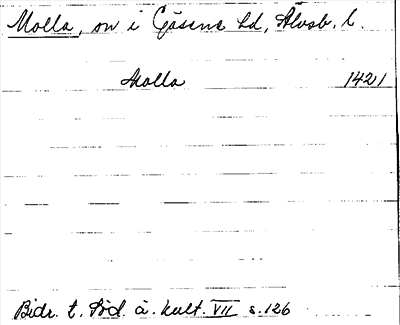 Molla, sn i Gäsene hd, Älvsb. l.
Molla 1421
Bidr. t. Söd. ä. kult. VII s. 126